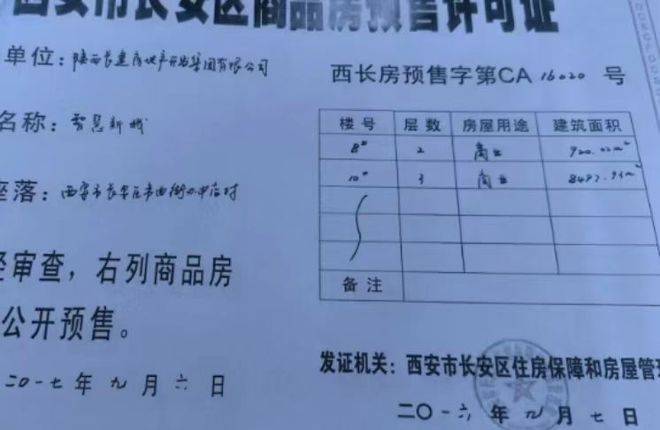 西安市长安区商品房预售许可证
单位：陕西长建房地产开发集团有限公司
西长房预售字第CA 16020 号
名称：智慧新城
楼号 层数 房屋用途 建筑面积
8# 2 商业 920.22m²
10# 3 商业 8497.93m²
备注
座落：西安市长安区
经审查，右列商品房
公开预售。
发证机关：西安市长安区住房保障和房屋管理
二〇一七年九月六日
二〇一六年九月七日